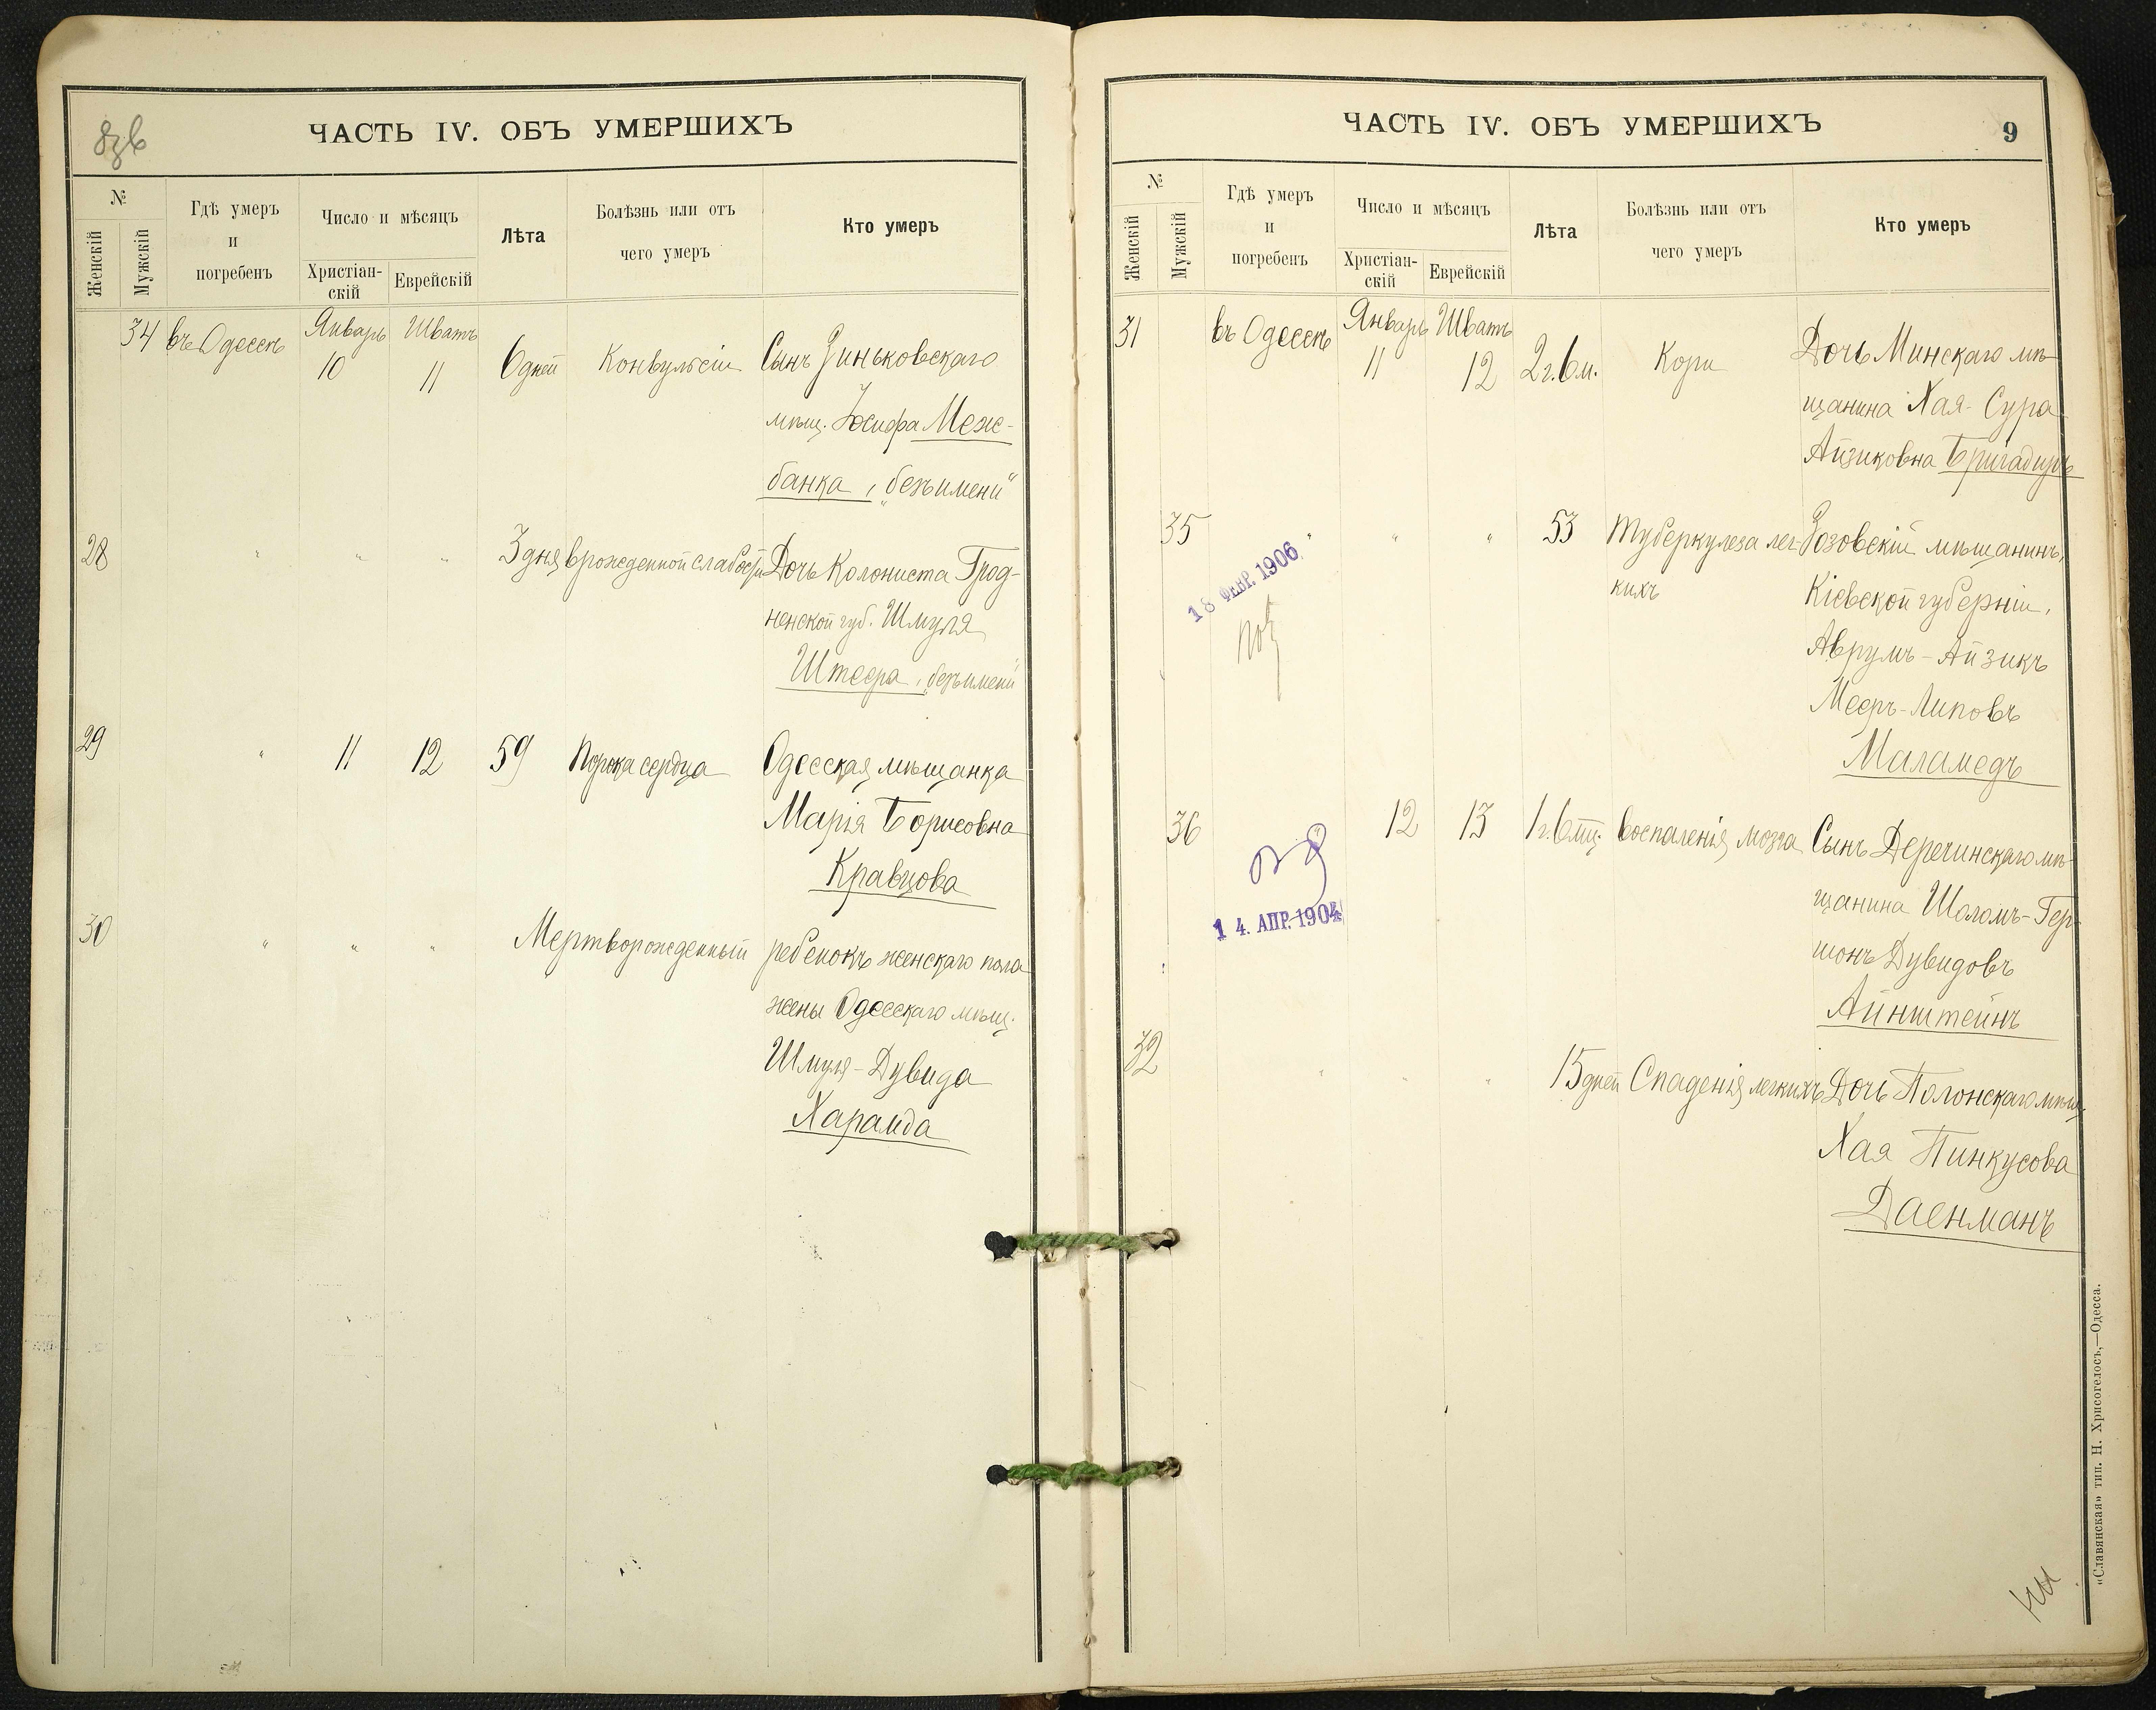 ЧАСТЬ IV. ОБЪ УМЕРШИХЪ
№
Женскій
Мужскій
Гдѣ умеръ
и
погребенъ
Число и мѣсяцъ
Христіан-
скій
Еврейскій
Лѣта
Болѣзнь или отъ
чего умеръ
Кто умеръ
34 въ Одессѣ Январь 10 Шватъ 11 6 дней Конвульсіи Сынъ Зиньковскаго
мѣщ. Іосифа Меж-
банка, „безъ имени“
28 " " " 3 дня врожденной слабости Дочь Колониста Грод-
ненской губ. Шмуля
Штеера, „безъ имени“
29 " 11 12 59 Порока сердца Одесская мѣщанка
Марія Борисовна
Кравцова
30 " " " Мертворожденный ребенокъ женскаго пола
жены Одесскаго мѣщ.
Шмуля-Дувида
Харамда
ЧАСТЬ IV. ОБЪ УМЕРШИХЪ
9
№
Женскій
Мужскій
Гдѣ умеръ
и
погребенъ
Число и мѣсяцъ
Христіан-
скій
Еврейскій
Лѣта
Болѣзнь или отъ
чего умеръ
Кто умеръ
31 въ Одессѣ Январь 11 Шватъ 12 2 г. 6 м. Кори Дочь Минскаго мѣ-
щанина Хая-Сура
Айзиковна Бригадиръ
35 " " " 53 Туберкулеза лег- Розовскій мѣщанинъ,
кихъ Кіевской губерніи,
18 ФЕВР. 1906
Аврумъ-Айзикъ
Мееръ-Липовъ
Маламедъ
36 12 13 1 г. 6 мц. воспаленія мозга Сынъ Деречинскаго мѣ-
щанина Шоломъ-Гер-
14. АПР. 1904
шонъ Дувидовъ
Айнштейнъ
32 " " " 15 дней Спаденія легкихъ Дочь Полонскаго мѣщ.
Хая Пинкусова
Даенманъ
«Славянская» тип. Н. Хрисогелосъ,—Одесса.